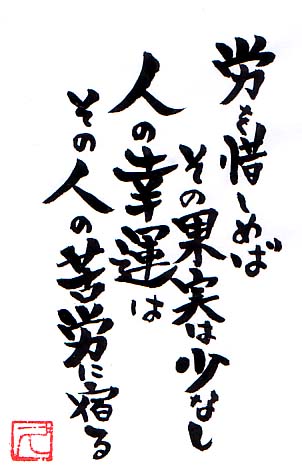 労を惜しめば
その果実は少なし
人の幸運は
その人の苦労に宿る